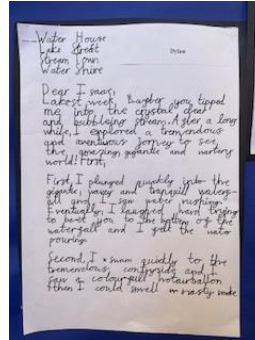 Water House
Lake Street Dylan
Stream Town
Water Shire
Dear Isaac,
Lakest week, you tipped
me into the crystal clear
and bubbling stream. After a long
while, I explored a tremendous
and aventurous jorney to see
the amazing, gigantic and watery
world! First,
First, I plunged quickly into the
gigantic, and tranquil
and I saw water rushing.
Eventually, I laughed hard trying
to beat you to the bottom of the
waterfall and I felt the water
pouring.
Second, I swam quickly to the
tremendous and I
saw a colourfull hotairballon
then I could smell nasty smoke